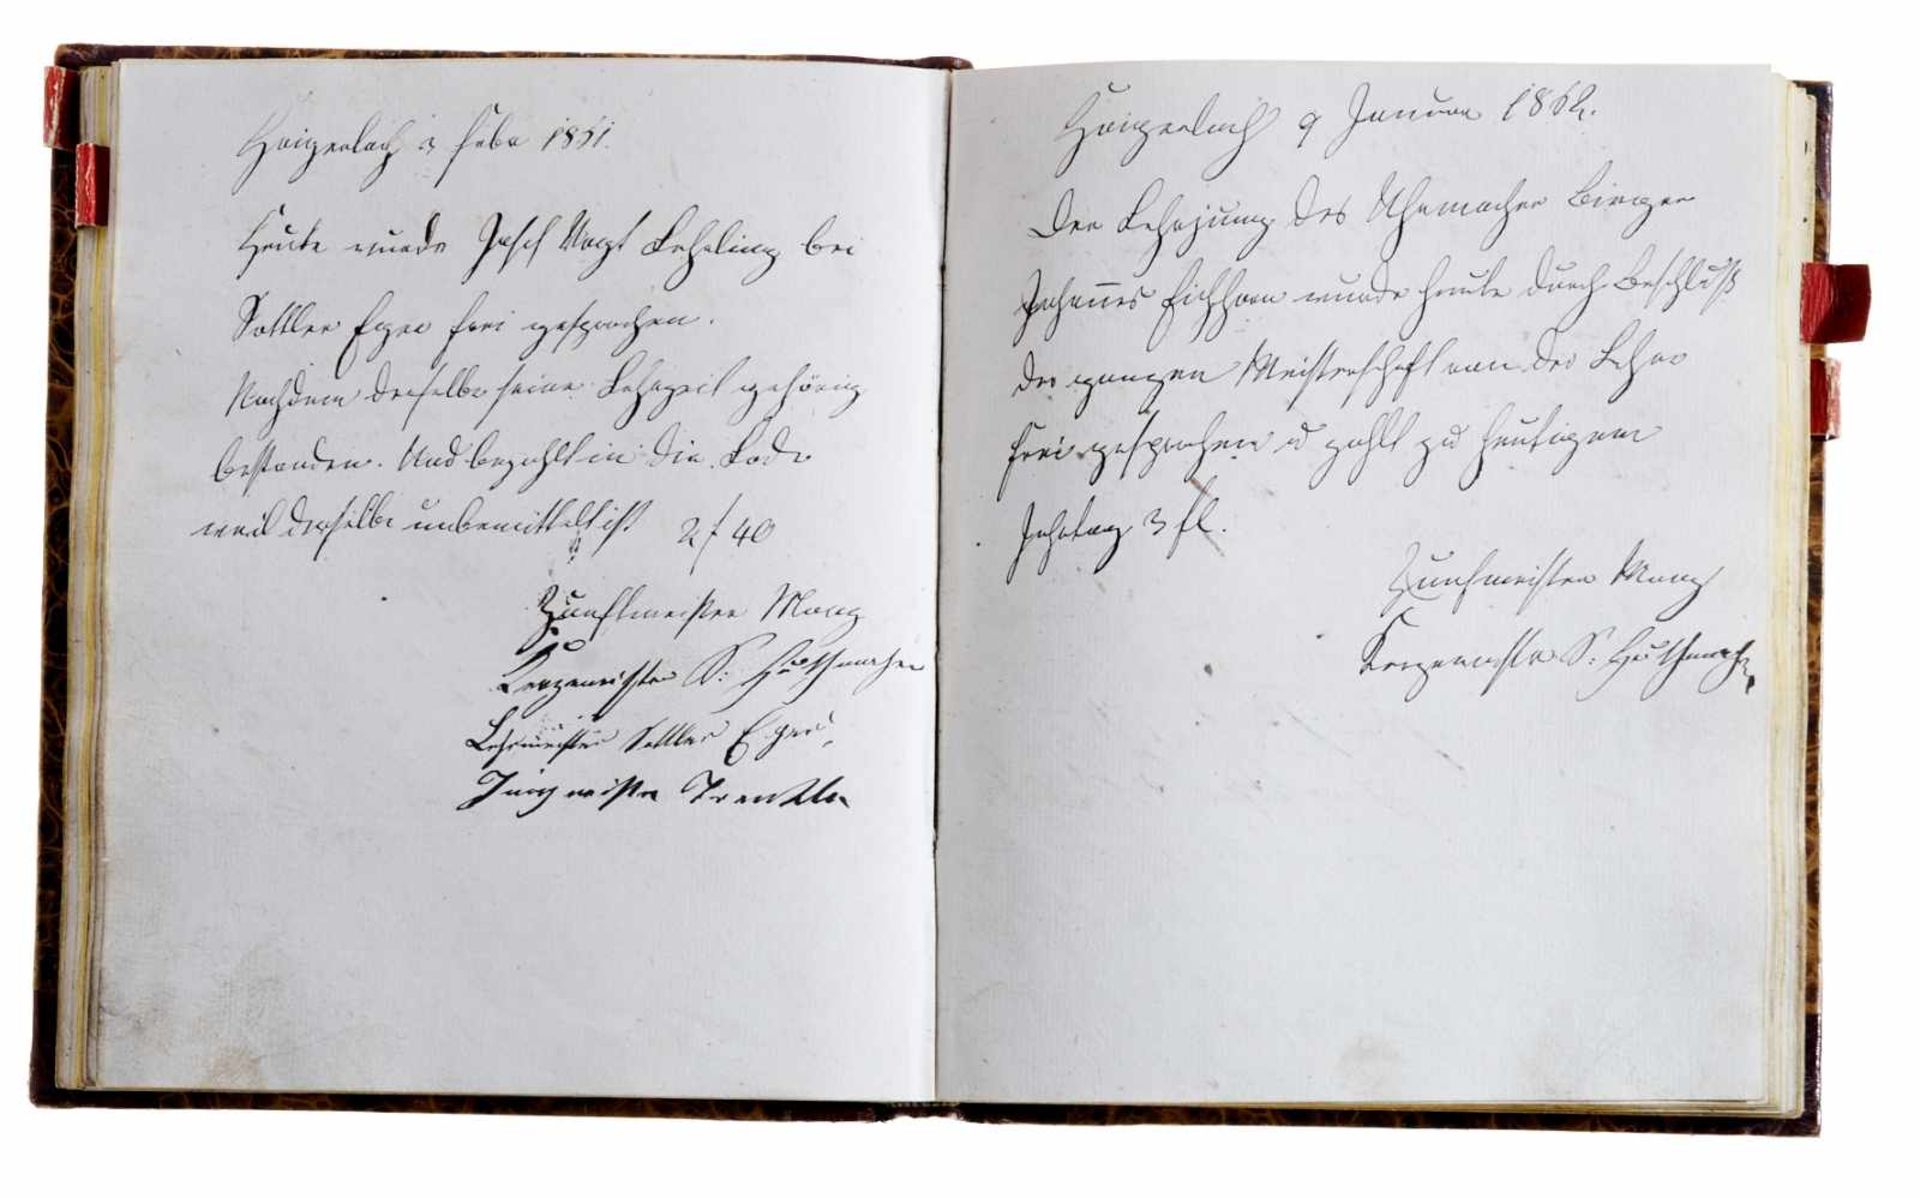 Haigerloch 3 Febr 1851.
Heute wurde Josef Vogt Lehrling bei
Sattler Eger frei gesprochen.
Nachdem derselbe seine Lehrzeit gehörig
bestanden. Und bezahlt in die Lade
weil derselbe unbemittelt ist 2 f 40
Zunftmeister Mang
Kerzenmeister S: Huthmacher
Lehrmeister Sattler Eger
Jungmeister Trenkle
Haigerloch 9 Januar 1852.
Der Lehrjung des Uhrmacher Binger
Johannes Eichhorn wurde heute durch Beschluß
der ganzen Meisterschaft von der Lehre
frei gesprochen u zahlt zu heutigem
Jahrtag 3 fl.
Zunfmeister Mang
Kerzenmeister S: Huthmacher